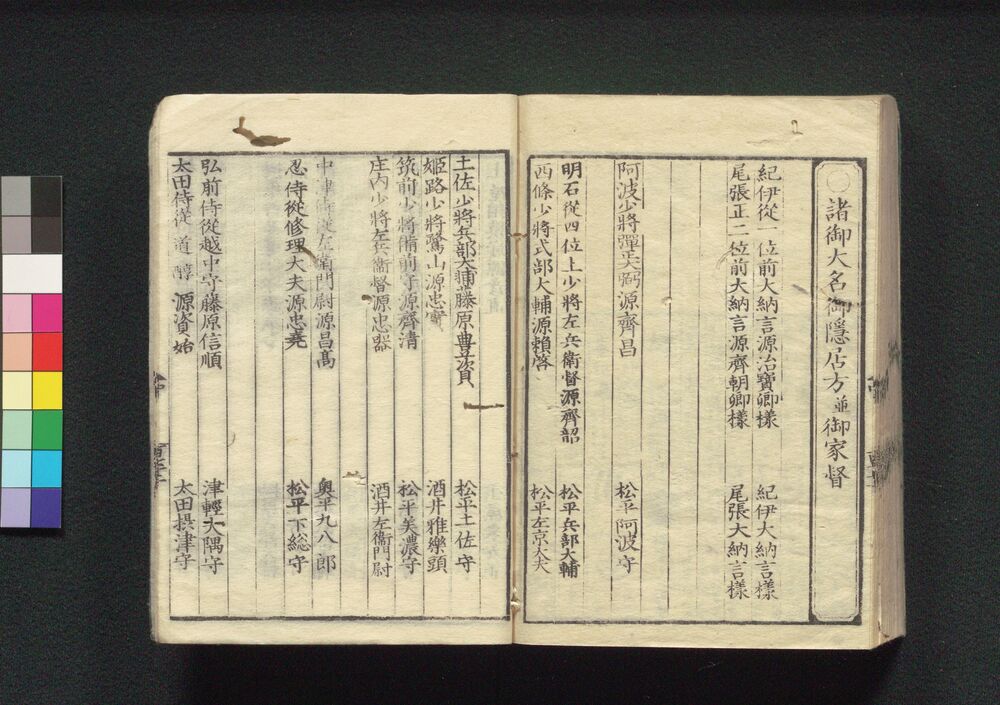 諸御大名御隱居方並御家督
紀伊從一位前大納言源治寶卿樣 紀伊大納言樣
尾張正二位前大納言源齊朝卿樣 尾張大納言樣
阿波少將彈正大弼源齊昌 松平阿波守
明石從四位上少將左兵衛督源齊韶 松平兵部大輔
西條少將式部大輔源賴啓 松平左京大夫
土佐少將兵部大輔藤原豊資 松平土佐守
姫路少將鷺山源忠實 酒井雅樂頭
筑前少將備前守源齊清 松平美濃守
庄内少將左兵衞督源忠器 酒井左衞門尉
中津侍從左衞門尉源昌髙 奥平九八郎
忍侍從修理大夫源忠堯 松平下総守
弘前侍從越中守藤原信順 津輕大隅守
太田侍從道醇源資始 太田摂津守